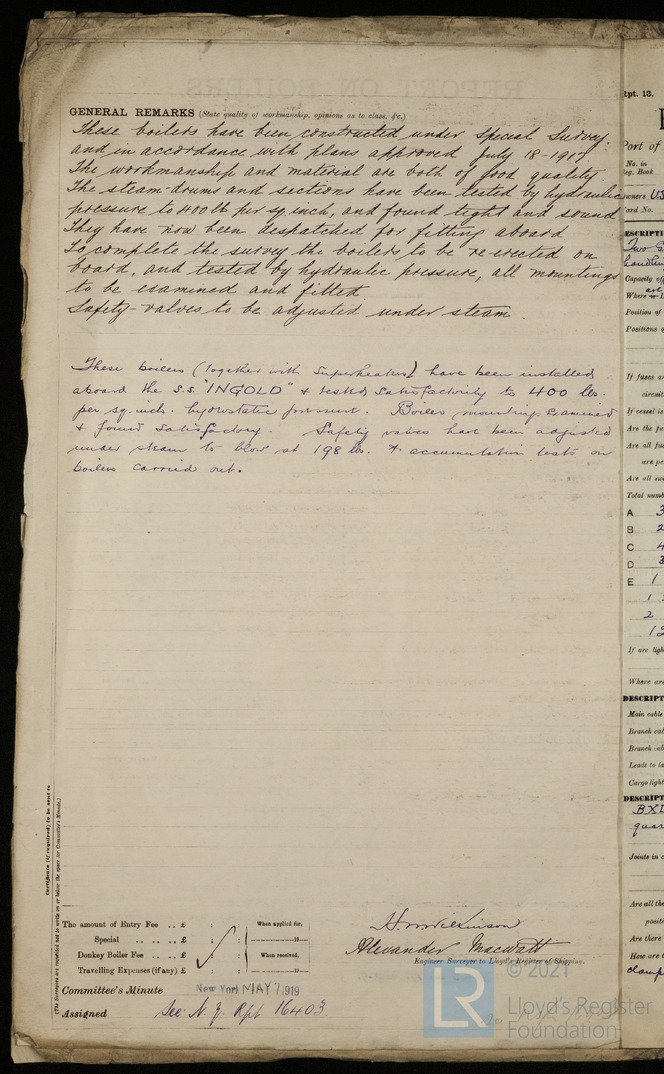 GENERAL REMARKS (State quality of workmanship, opinions as to class, &c.)
These boilers have been constructed under Special Survey
and in accordance with plans approved July 18-1917
The workmanship and material are both of good quality
The steam-drums and sections have been tested by hydraulic
pressure to 400 lb per sq inch, and found tight and sound
They have now been despatched for fitting aboard
To complete the survey the boilers to be re-erected on
board, and tested by hydraulic pressure, all mountings
to be examined and fitted
Safety-valves to be adjusted under steam.
These boilers (together with Superheaters) have been installed
aboard the S.S. "INGOLD" & tested satisfactorily to 400 lbs.
per sq inch. hydrostatic pressure. Boiler mountings examined
& found satisfactory. Safety valves have been adjusted
under steam to blow at 198 lbs. & accumulation tests on
boilers carried out.
Certificate (if required) to be sent to
(The Surveyors are requested not to write on or below the space for Committee's Minute.)
The amount of Entry Fee .. £ : :
Special .. .. .. £ : :
Donkey Boiler Fee .. .. £ : :
Travelling Expenses (if any) £ : :
When applied for,
19
When received,
19
H. M. Wilkinson
Alexander Macwatt
Engineer Surveyor to Lloyd's Register of Shipping.
Committee's Minute New York MAY 7 1919
Assigned See N.Y. Rpt 16403.
LR
© 2021
Lloyd's Register
Foundation
Rpt. 13.
Port of
No. in
Reg. Book
Owners US
Yard No.
DESCRIPTI
Two
Capacity of
Where is
are
Position of
Positions o
If fuses a
circuit
If vessel is
Are the fu
Are all fu
are pe
Are all sw
Total numb
A 3
B 2
C 4
D 3
E 1
1
2
12
If arc ligh
Where ar
DESCRIPT
Main cable
Branch cab
Branch cab
Leads to la
Cargo light
DESCRIPT
BX
quar
Joints in c
Are all the
positi
Are there
How are t
clamp